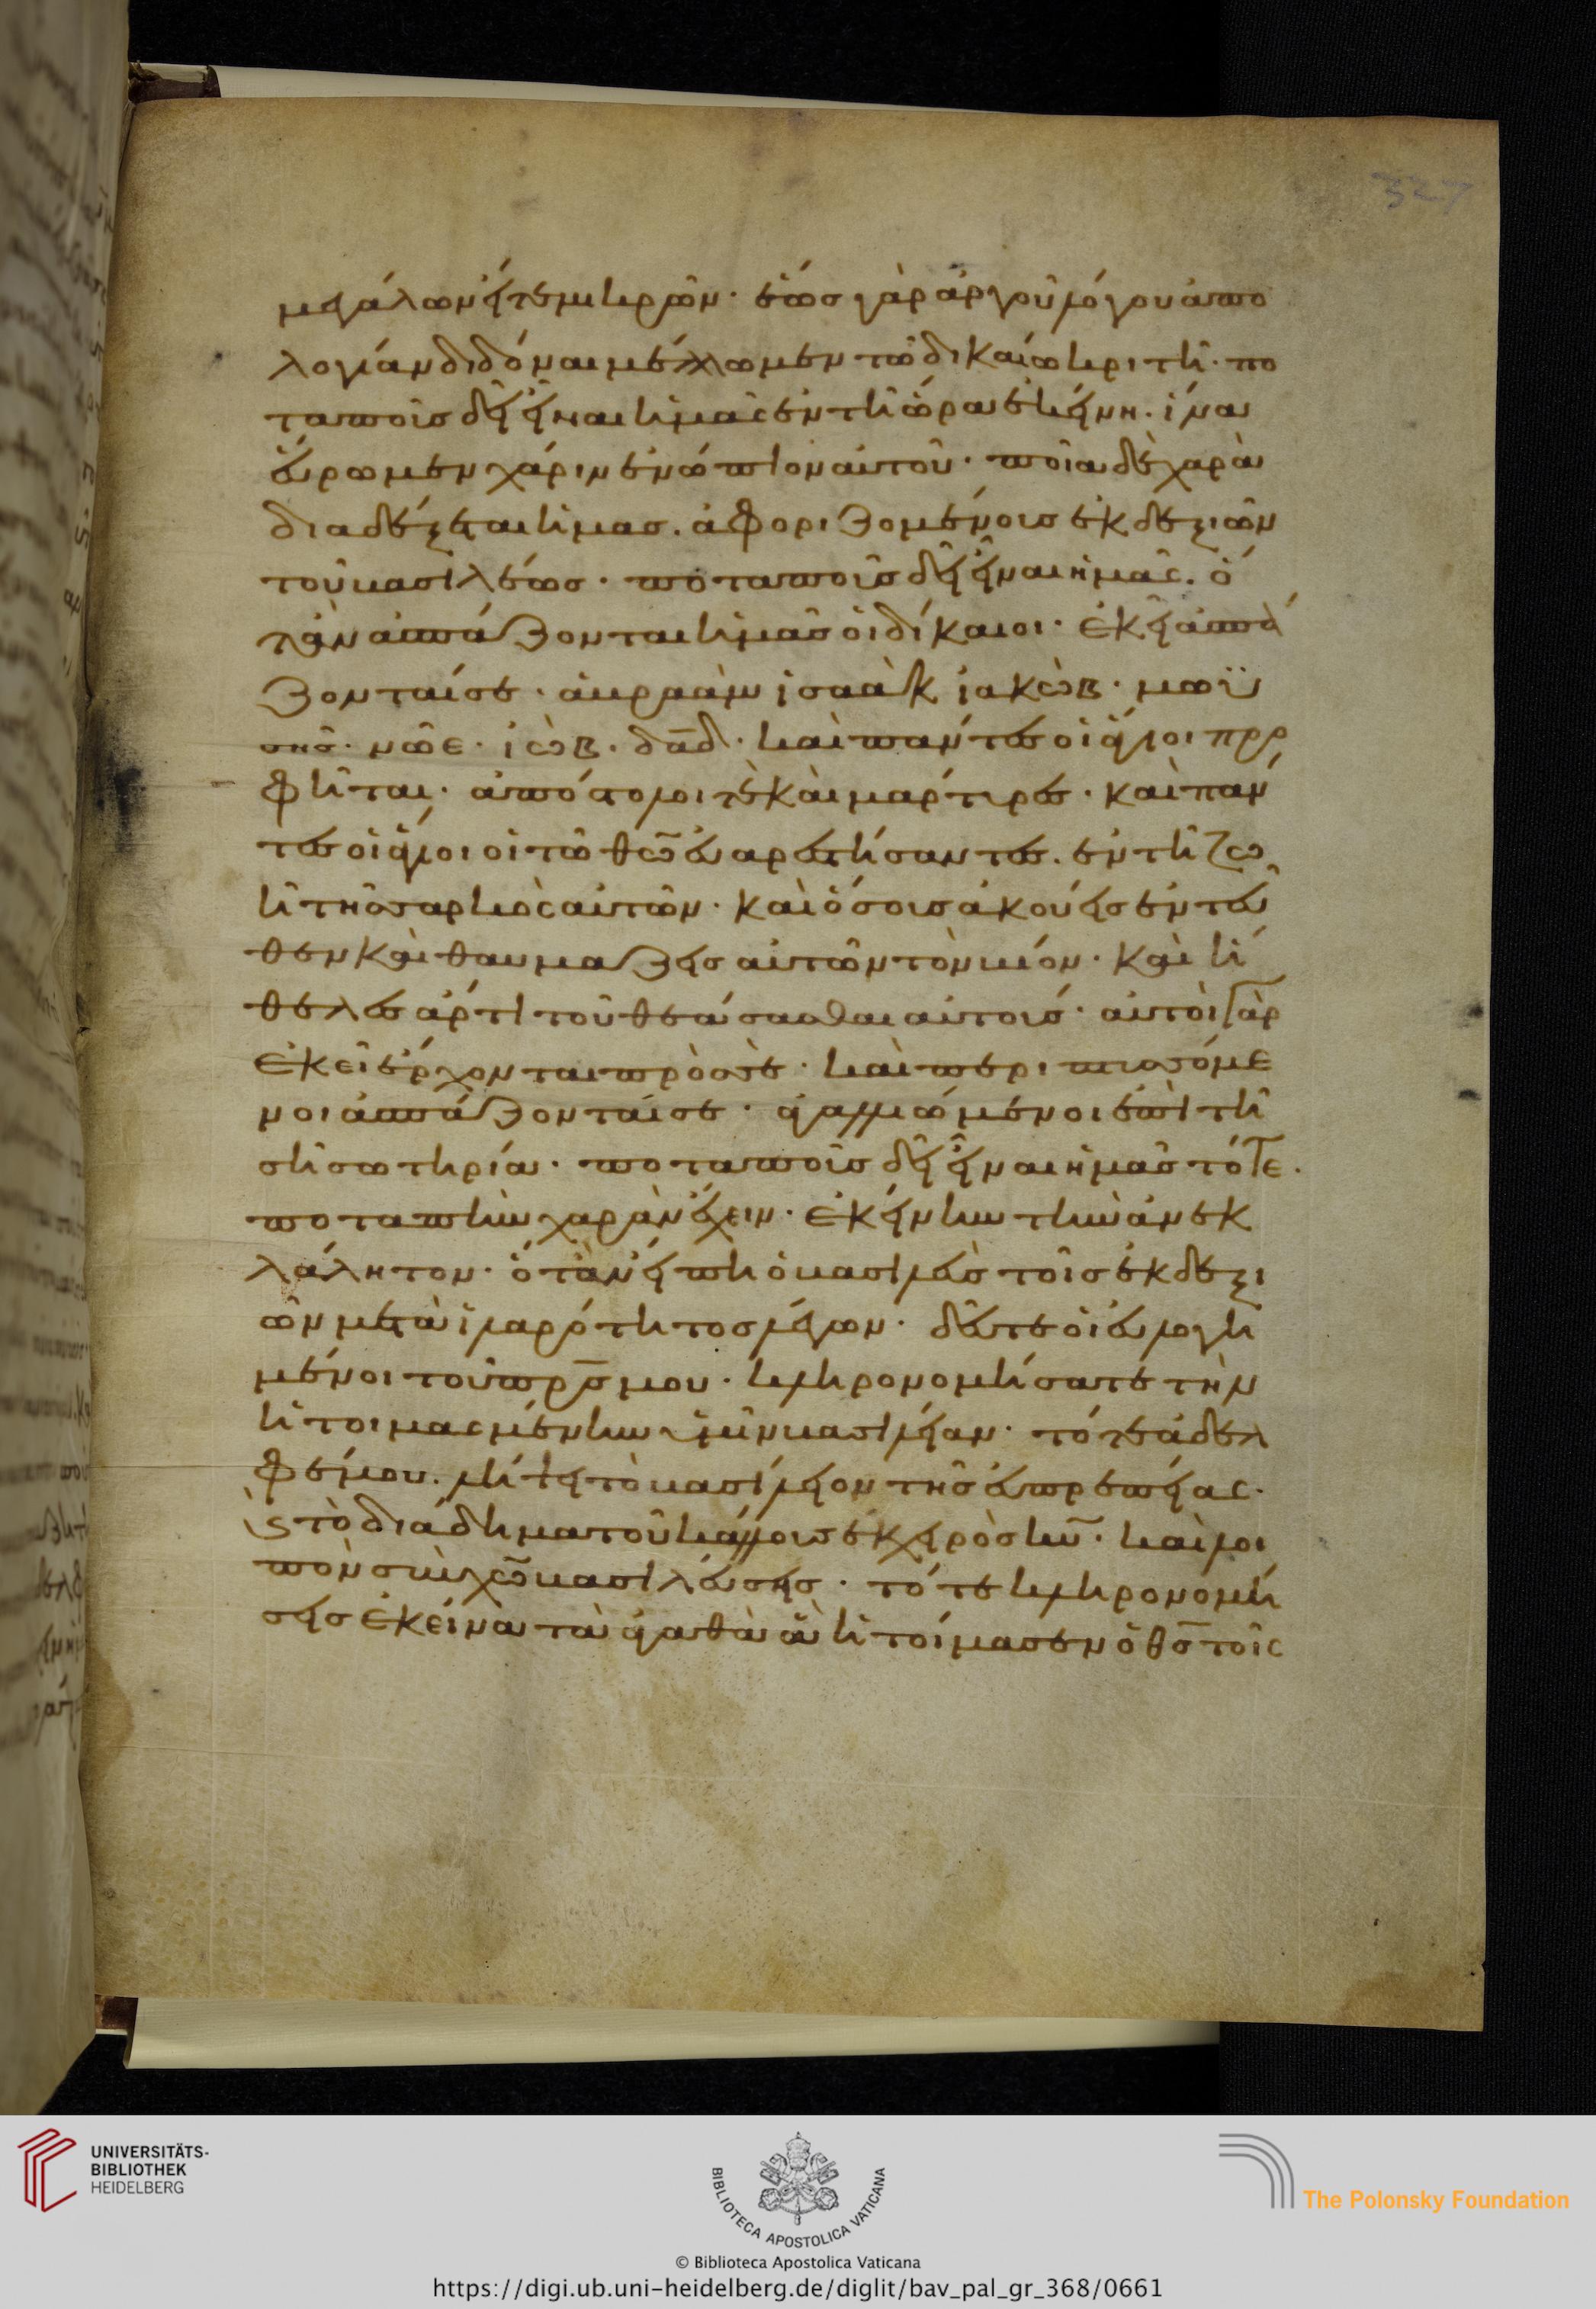 327
μεγάλων εἴτε μικρῶν· ἕως γὰρ ἀργοῦ λόγου ἀπο
λογίαν διδόναι μέλλωμεν τῶ δικαίω κριτῆ· πο
ταποῖς δεῖ εἶναι ἡμᾶς ἐν τῆ ὥρα ἐκείνη. ἵνα
εὕρωμεν χάριν ἐνώπιον αὐτοῦ· ποία δὲ χαρὰ
διαδέξεται ἡμας. ἀφοριζομένοις ἐκ δεξιῶν
τοῦ βασιλέως· ποταποῖς δεῖ εἶναι ἡμᾶς. ὁ
τὰν ἀσπάζονται ἡμᾶς οἱ δίκαιοι· ἐκεῖ ἀσπά
ζονταί σε· ἀβραὰμ ἰσαὰκ ἰακὼβ· μωϋ
σῆς· νῶε· ἰὼβ· δαδ· καὶ πάντες οἱ ἅγιοι προ
φῆται· ἀπόστολοι τὲ καὶ μάρτυρες· καὶ πάν
τες οἱ ἅγιοι οἱ τῶ θῶ εὐαρεστήσαντες. ἐν τῆ ζω
ῆ τῆς σαρκὸς αὐτῶν· καὶ ὅσοις ἀκούεις ἐντεῦ
θεν καὶ θαυμάζεις αὐτῶν τὸν βίον· καὶ ἤ
θελες ἄρτι τοῦ θεάσασθαι αὐτοις· αὐτοὶ γὰρ
ἐκεῖ ἔρχονται πρὸς σὲ· καὶ περιπτυσσόμε
νοι ἀσπάζονταί σε· ἀγαλλιώμενοι ἐπὶ τῆ
σῆ σωτηρία· ποταποῖς δεῖ εἶναι ἡμᾶς τότε·
ποταπὴν χαρὰν ἔχειν· ἐκείνην τὴν ἀνεκ
λάλητον· ὁτὰν εἴπη ὁ βασιλεὺς τοῖς ἐκ δεξι
ῶν μετὰ ἱλαρότητος λέγων· δεῦτε οἱ εὐλογη
μένοι τοῦ πρς μου· κληρονομήσατε τὴν
ἡτοιμασμένην ὑμῖν βασιλείαν· τότε ἀδελ
φέ μου. λήψη τὸ βασίλειον τῆς εὐπρεπείας·
καὶ τὸ διάδημα τοῦ κάλλους ἐκ χειρὸς κυ· καὶ λοι
πὸν σὺν χῶ βασιλεύσεις· τότε κληρονομή
σεις ἐκεῖνα τὰ ἀγαθὰ ἃ ἡτοίμασεν ὁ θς τοῖς
UNIVERSITÄTS-
BIBLIOTHEK
HEIDELBERG
BIBLIOTECA APOSTOLICA VATICANA
The Polonsky Foundation
© Biblioteca Apostolica Vaticana
https://digi.ub.uni-heidelberg.de/diglit/bav_pal_gr_368/0661